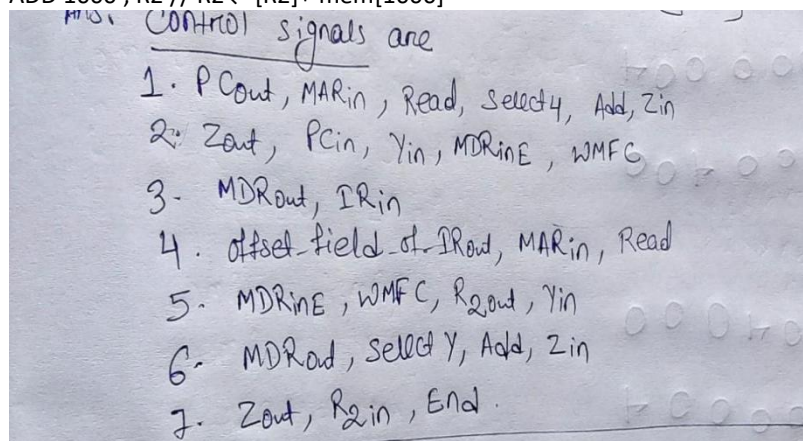 ADD 1000 , R2 // R2 <- [R2]+ mem[1000]
Ans. Control signals are
1. PCout, MARin, Read, Select4, Add, Zin
2. Zout, PCin, Yin, MDRinE, WMFC
3- MDRout, IRin
4. offset_field_of_IRout, MARin, Read
5. MDRinE, WMFC, R2out, Yin
6- MDRout, Select Y, Add, Zin
7. Zout, R2in, End.